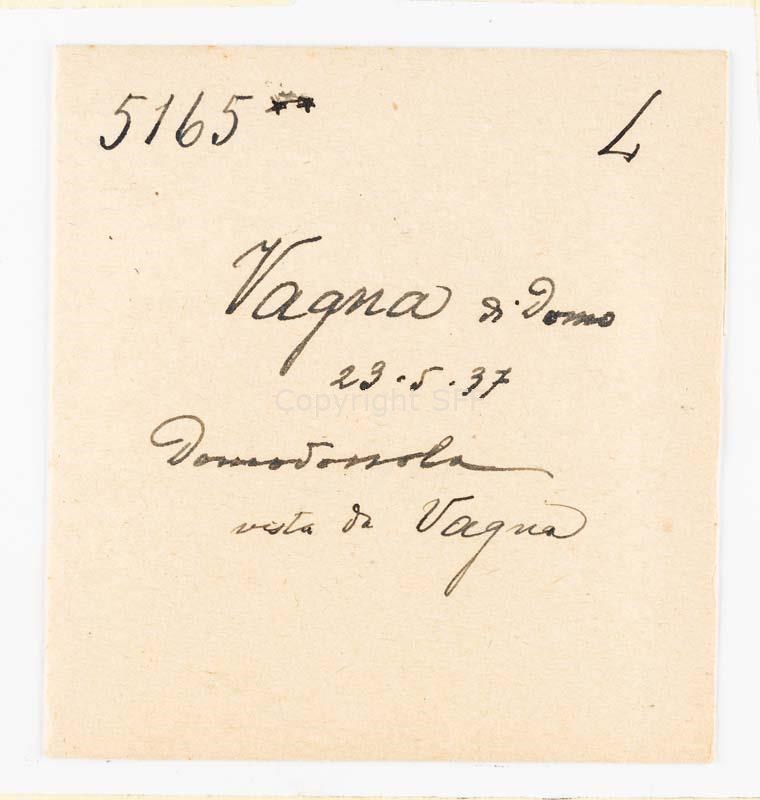 5165 ** L
Vagna di Domo
23.5.37
Copyright SFI
Domodossola
vista da Vagna